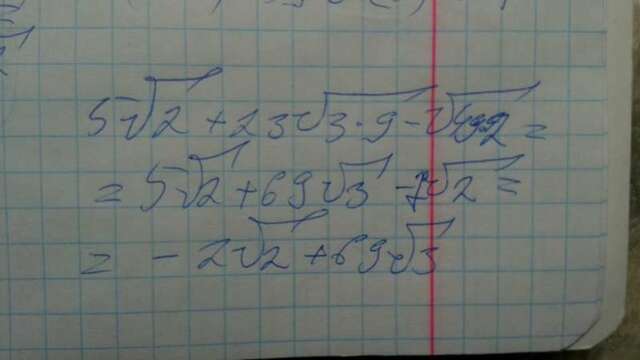 5√2 + 23√3·9 - √49·2 =
= 5√2 + 69√3 - 7√2 =
= - 2√2 + 69√3